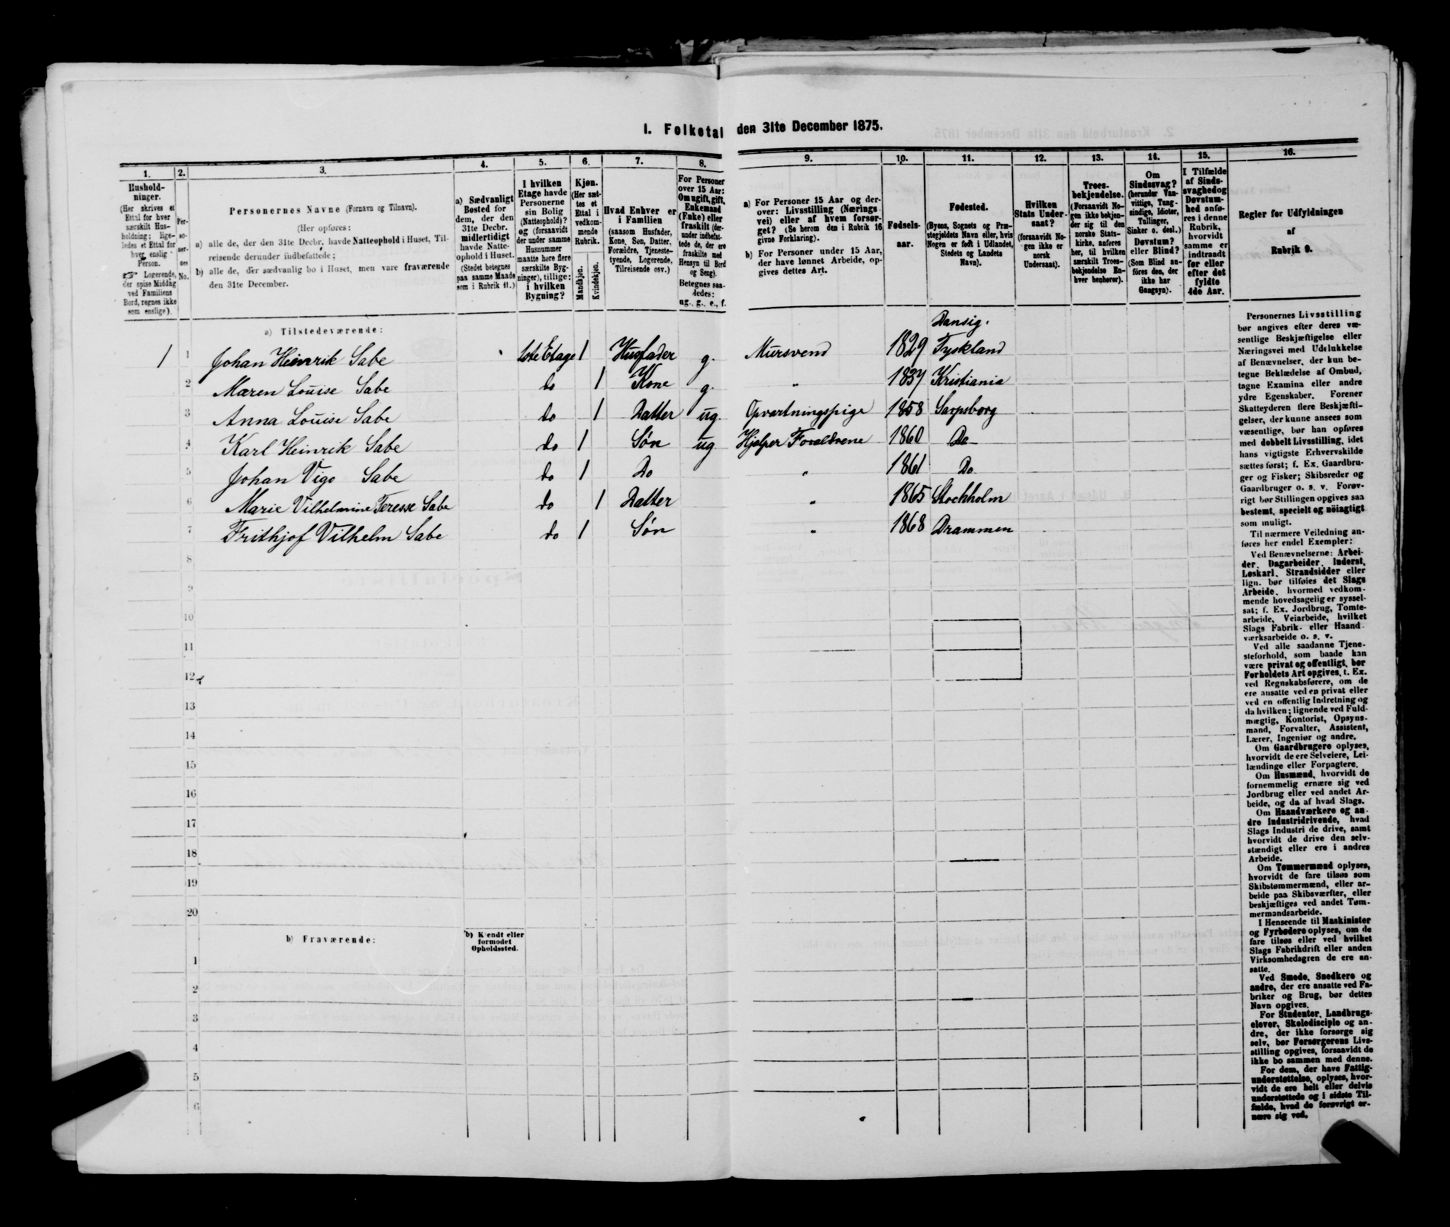 1. Folketal den 31te December 1875.
1. 2. 3. 4. 5. 6. 7. 8. 9. 10. 11. 12. 13. 14. 15. 16.
Hushold-
ninger.
(Her skrives et
Ettal for hver
særskilt Hus-
holdning; lige-
ledes et Ettal for
hver enslig
Person.
☞ Logerende,
der spise Middag
ved Familiens
Bord, regnes ikke
som enslige).
Per-
so-
ner-
nes
No.
Personernes Navne (Fornavn og Tilnavn).
(Her opføres:
a) alle de, der den 31te Decbr. havde Natteophold i Huset, Til-
reisende derunder indbefattede;
b) alle de, der sædvanlig bo i Huset, men vare fraværende
den 31te December.
a) Sædvanligt
Bosted for
dem, der den
31te Decbr.
midlertidigt
havde Natte-
ophold i Huset.
(Stedet betegnes
paa samme Maade
som i Rubrik 11.)
I hvilken
Etage havde
Personerne
sin Bolig
(Natteophold)?
og (forsaavidt
der under samme
Husnummer
maatte høre flere
særskilte Byg-
ninger), tillige:
i hvilken
Bygning?
Kjøn.
(Her sæt-
tes et
Ettal i
vedkom-
mende
Rubrik.
Mandkjøn.
Kvindekjøn.
Hvad Enhver er
i Familien
(saasom Husfader,
Kone, Søn, Datter,
Forældre, Tjeneste-
tyende, Logerende,
Tilreisende osv.)
For Personer
over 15 Aar:
Om ugift, gift,
Enkemand
(Enke) eller
fraskilt (der-
under indbefat-
tede de, der ere
fraskilte med
Hensyn til Bord
og Seng).
Betegnes saa-
ledes:
ug., g., e., f.
a) For Personer 15 Aar og der-
over: Livsstilling (Nærings-
vei) eller af hvem forsør-
get? (Se herom den i Rubrik 16
givne Forklaring).
b) For Personer under 15 Aar,
der have lønnet Arbeide, op-
gives dettes Art.
Fødsels-
aar.
Fødested.
(Byens, Sognets og Præ-
stegjeldets Navn eller, hvis
Nogen er født i Udlandet,
Stedets og Landets
Navn).
Hvilken
Stats Under-
saat?
(forsaavidt No-
gen ikke er
norsk
Undersaat).
Troes-
bekjendelse.
(Forsaavidt No-
gen ikke bekjen-
der sig til den
norske Stats-
kirke, anføres
her, til hvilken
særskilt Troes-
bekjendelse En-
hver henhører).
Om
Sindssvag?
(herunder Van-
vittige, Tung-
sindige, Idioter,
Tullinger,
Sinker o. desl.)
Døvstum?
eller Blind?
(Som Blind an-
føres den, der
ikke har
Gangsyn).
I Tilfælde
af Sinds-
svaghed og
Døvstum-
hed anfø-
res i denne
Rubrik,
hvorvidt
samme er
indtraadt
før eller
efter det
fyldte
4de Aar.
Regler for Udfyldningen
af
Rubrik 9.
a) Tilstedeværende:
Dansig.
1 1 Johan Heinrik Sabe 1ste Etage 1 Husfader g. Mursvend 1829 Tyskland
2 Maren Louise Sabe do 1 Kone g. " 1837 Kristiania
3 Anna Louise Sabe do 1 Datter ug. Opvartningspige 1858 Sarpsborg
4 Karl Heinrik Sabe do 1 Søn ug Hjælper Forældrene 1860 Do
5 Johan Vigo Sabe do 1 Do " 1861 Do.
6 Marie Vilhelmine Terese Sabe do 1 Datter " 1865 Stockholm
7 Frithjof Vilhelm Sabe do 1 Søn " 1868 Drammen
8
9
10
11
12
13
14
15
16
17
18
19
20
b) Fraværende:
b) Kjendt eller
formodet
Opholdssted.
1
2
3
4
5
6
Personernes Livsstilling
bør angives efter deres væ-
sentlige Beskjæftigelse eller
Næringsvei med Udelukkelse
af Benævnelser, der kun be-
tegne Bekledelse af Ombud,
tagne Examina eller andre
ydre Egenskaber. Forener
Skatteyderen flere Beskjæfti-
gelser, der kunne ansees som
væsentlige, bør han opføres
med dobbelt Livsstilling, idet
hans vigtigste Erhvervskilde
sættes først; f. Ex. Gaardbru-
ger og Fisker; Skibsreder og
Gaardbruger o. s. v. Forøv-
rigt bør Stillingen opgives saa
bestemt, specielt og nøiagtigt
som muligt.
Til nærmere Veiledning an-
føres her endel Exempler:
Ved Benævnelserne: Arbei-
der, Dagarbeider, Inderst,
Løskarl, Strandsidder eller
lign. bør tilføies det Slags
Arbeide, hvormed vedkom-
mende hovedsagelig er syssel-
sat; f. Ex. Jordbrug, Tomte-
arbeide, Veiarbeide, hvilket
Slags Fabrik- eller Haand-
værksarbeide o. s. v.
Ved alle saadanne Tjene-
steforhold, som baade kan
være privat og offentligt, bør
Forholdets Art opgives, t. Ex.
ved Regnskabsførere, om de
ere ansatte ved en privat eller
ved en offentlig Indretning og
da hvilken; lignende ved Fuld-
mægtig, Kontorist, Opsyns-
mand, Forvalter, Assistent,
Lærer, Ingeniør og andre.
Om Gaardbrugere oplyses,
hvorvidt de ere Selveiere, Lei-
lændinge eller Forpagtere.
Om Husmænd, hvorvidt de
fornemmelig ernære sig ved
Jordbrug eller ved andet Ar-
beide, og da af hvad Slags.
Om Haandværkere og an-
dre Industridrivende, hvad
Slags Industri de drive, samt
hvorvidt de drive den selv-
stændigt eller ere i andres
Arbeide.
Om Tømmermænd oplyses,
hvorvidt de fare tilsøs som
Skibstømmermænd, eller ar-
beide paa Skibsværfter, eller
beskjæftiges ved andet Tøm-
mermandsarbeide.
I Henseende til Maskinister
og Fyrbødere oplyses, om de
fare tilsøs eller ved hvilket
Slags Fabrikdrift eller anden
Virksomhed agren de ere an-
satte.
Ved Smede, Snedkere og
andre, der ere ansatte ved Fa-
briker og Brug, bør dettes
Navn opgives.
For Studenter, Landbrugs-
elever, Skoledisciple og an-
dre, der ikke forsørge sig
selv, bør Forsørgerens Livs-
stilling opgives, forsaavidt de
ikke bo sammen med denne.
For dem, der have Fattig-
understøttelse, oplyses, hvor-
vidt de ere helt eller delvis
understøttede og i sidste Til-
fælde, hvad de forøvrigt er-
nære sig ved.